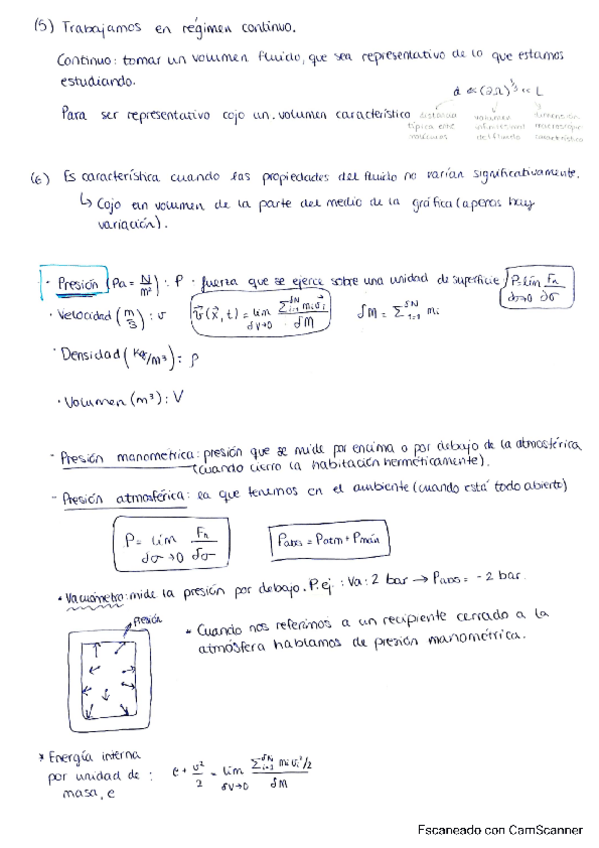 (5) Trabajamos en régimen continuo.
Continuo: tomar un volumen fluido, que sea representativo de lo que estamos
estudiando.
d << (δΩ)^1/3 << L
Para ser representativo cojo un volumen característico
distancia típica entre moléculas
volumen infinitesimal del fluido
dimensión macroscópica característica
(6) Es característica cuando las propiedades del fluido no varían significativamente.
↳ Cojo un volumen de la parte del medio de la gráfica (apenas hay
variación).
· Presión (Pa = N/m²): P · fuerza que se ejerce sobre una unidad de superficie P = lim Fn/dσ dσ→0
· Velocidad (m/s): v v⃗(x⃗,t) = lim δV→0 Σ i=1 δN mi v⃗i / δM δM = Σ i=1 δN mi
· Densidad (kg/m³): ρ
· Volumen (m³): V
- Presión manométrica: presión que se mide por encima o por debajo de la atmosférica
(cuando cierro la habitación herméticamente).
- Presión atmosférica: la que tenemos en el ambiente (cuando está todo abierto)
P = lim dσ→0 Fn/dσ
Pabs = Patm + Pmán
· Vacuómetro: mide la presión por debajo. P.ej.: Va: 2 bar → Pabs = -2 bar.
Presión
* Cuando nos referimos a un recipiente cerrado a la
atmósfera hablamos de presión manométrica.
* Energía interna
por unidad de : e + v²/2 = lim δV→0 Σ i=1 δN mi vi²/2 / δM
masa, e
Escaneado con CamScanner